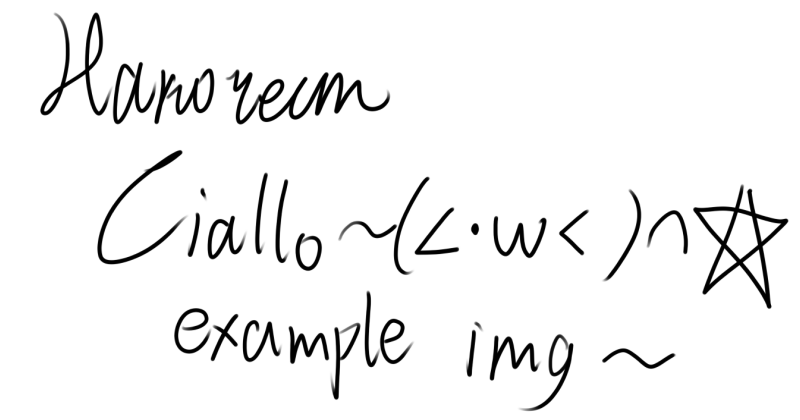 Hanoreem
Ciallo~(∠·w<)∩☆
example img~